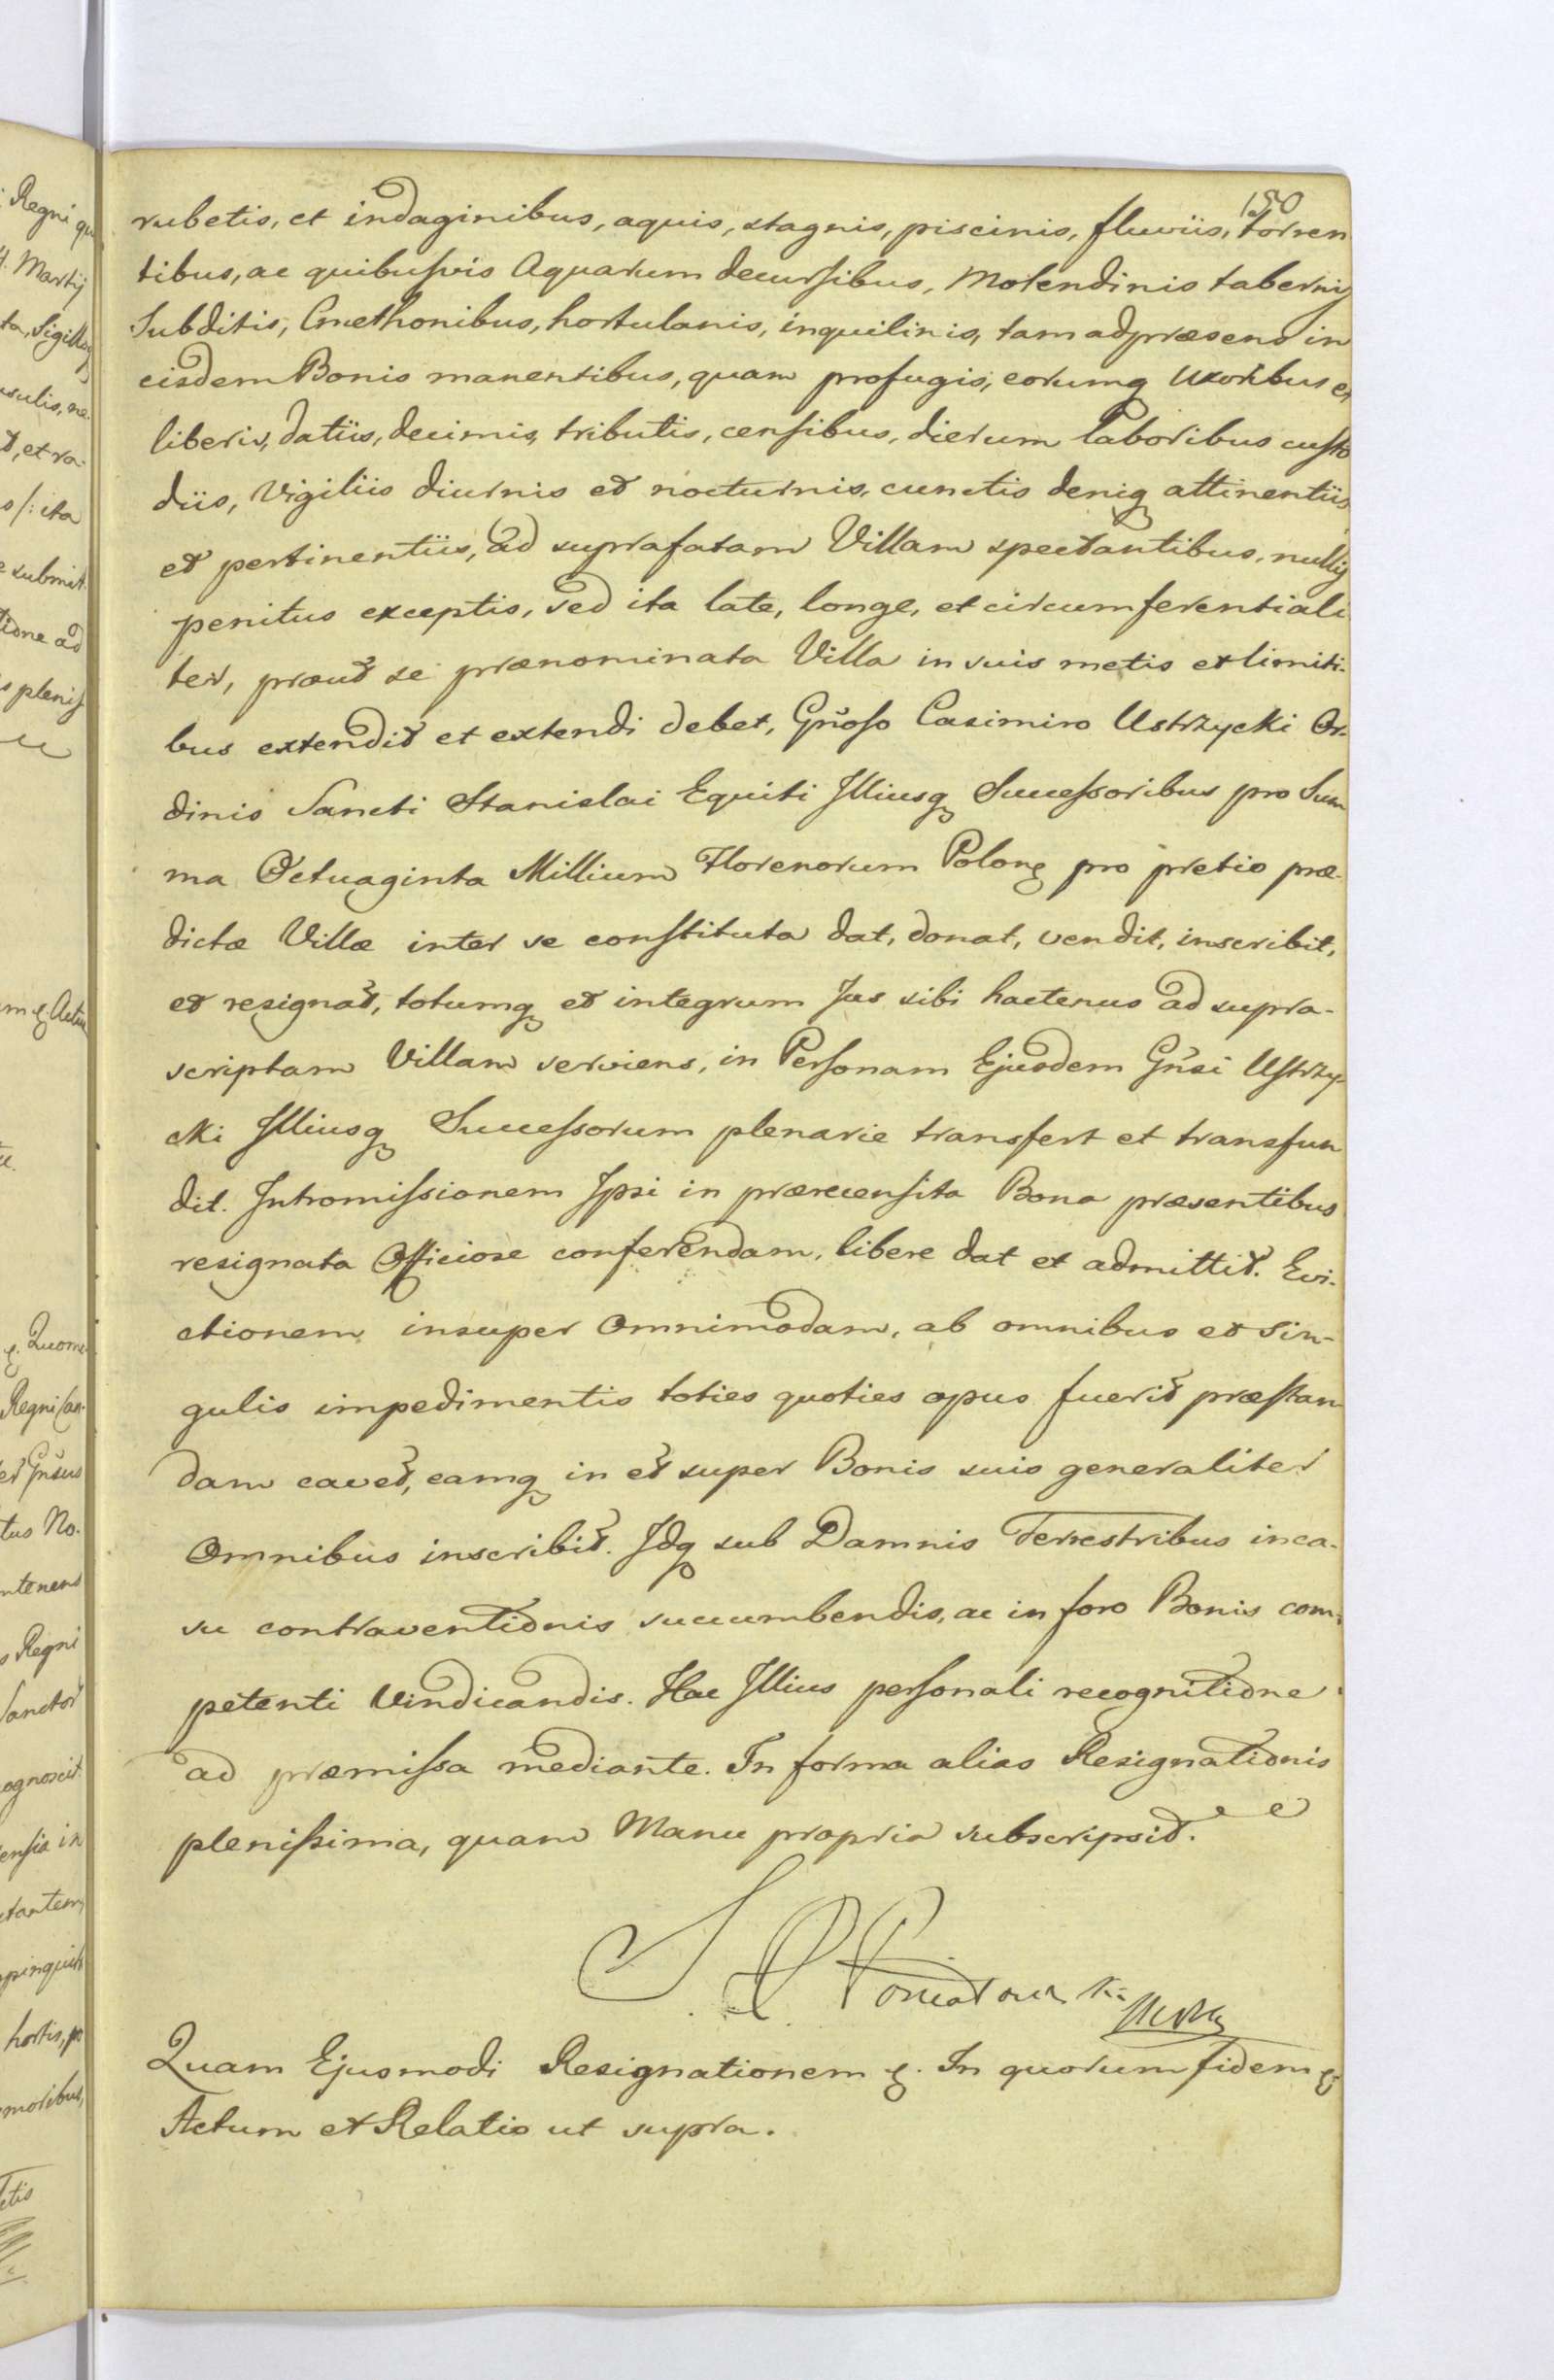 150
rubetis, et indaginibus, aquis, stagnis, piscinis, fluviis, torren
tibus, ac quibusvis Aquarum decursibus, Molendinis tabernis
Subditis, Cmethonibus, hortulanis, inquilinis, tam adpræsens in
eisdem Bonis manentibus, quam profugis, eorumq Uxoribus et
liberis, datiis, decimis, tributis, censibus, dierum laboribus custo
diis, Vigiliis diurnis et nocturnis, cunctis deniq attinentiis
et pertinentiis, ad suprafatam Villam spectantibus, nullis
penitus exceptis, sed ita late, longe, et circumferentiali
ter, prout se prænominata Villa in suis metis et limiti-
bus extendit et extendi debet, Gñoso Casimiro Ustrzycki Or-
dinis Sancti Stanislai Equiti Illiusq Successoribus pro Sum
ma Octuaginta Millium Florenorum Polonq pro pretio præ-
dictæ Villæ inter se constituta dat, donat, vendit, inscribit,
et resignat, totumq et integrum Jus sibi hactenus ad supra-
scriptam Villam serviens, in Personam Ejusdem Gñsi Ustrzy-
cki Illiusq Successorum plenarie transfert et transfun
dit. Intromissionem Ipsi in præcensita Bona præsentibus
resignata Officiose conferendam, libere dat et admittit. Evi-
ctionem insuper Omnimodam, ab omnibus et Sin-
gulis impedimentis toties quoties opus fuerit præstan
dam cavet, eamq in et super Bonis suis generaliter
Omnibus inscribit. Idq sub Damnis Terrestribus in ca-
su contraventionis succumbendis, ac in foro Bonis com-
petenti Vindicandis. Hac Illius personali recognitione
ad præmissa mediante. In forma alias Resignationis
plenissima, quam Manu propria subscripsit.
S P Poniatowski
Quam Ejusmodi Resignationem &. In quorum fidem &
Actum et Relatio ut supra.